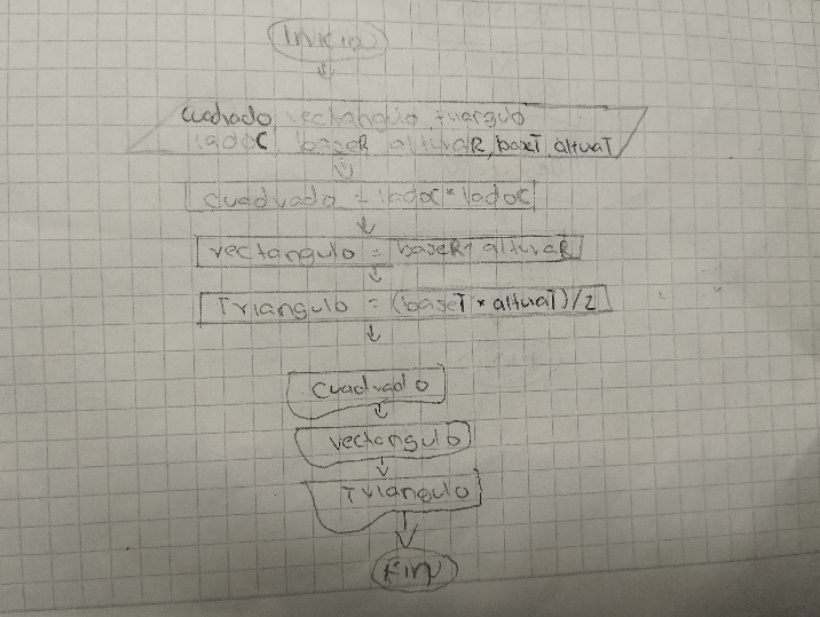 Inicio
cuadrado rectangulo triangulo
ladoC, baseR alturaR, baseT, alturaT
cuadrado = ladoC * ladoC
rectangulo = baseR * alturaR
Triangulo = (baseT * alturaT)/2
cuadrado
rectangulo
Triangulo
Fin